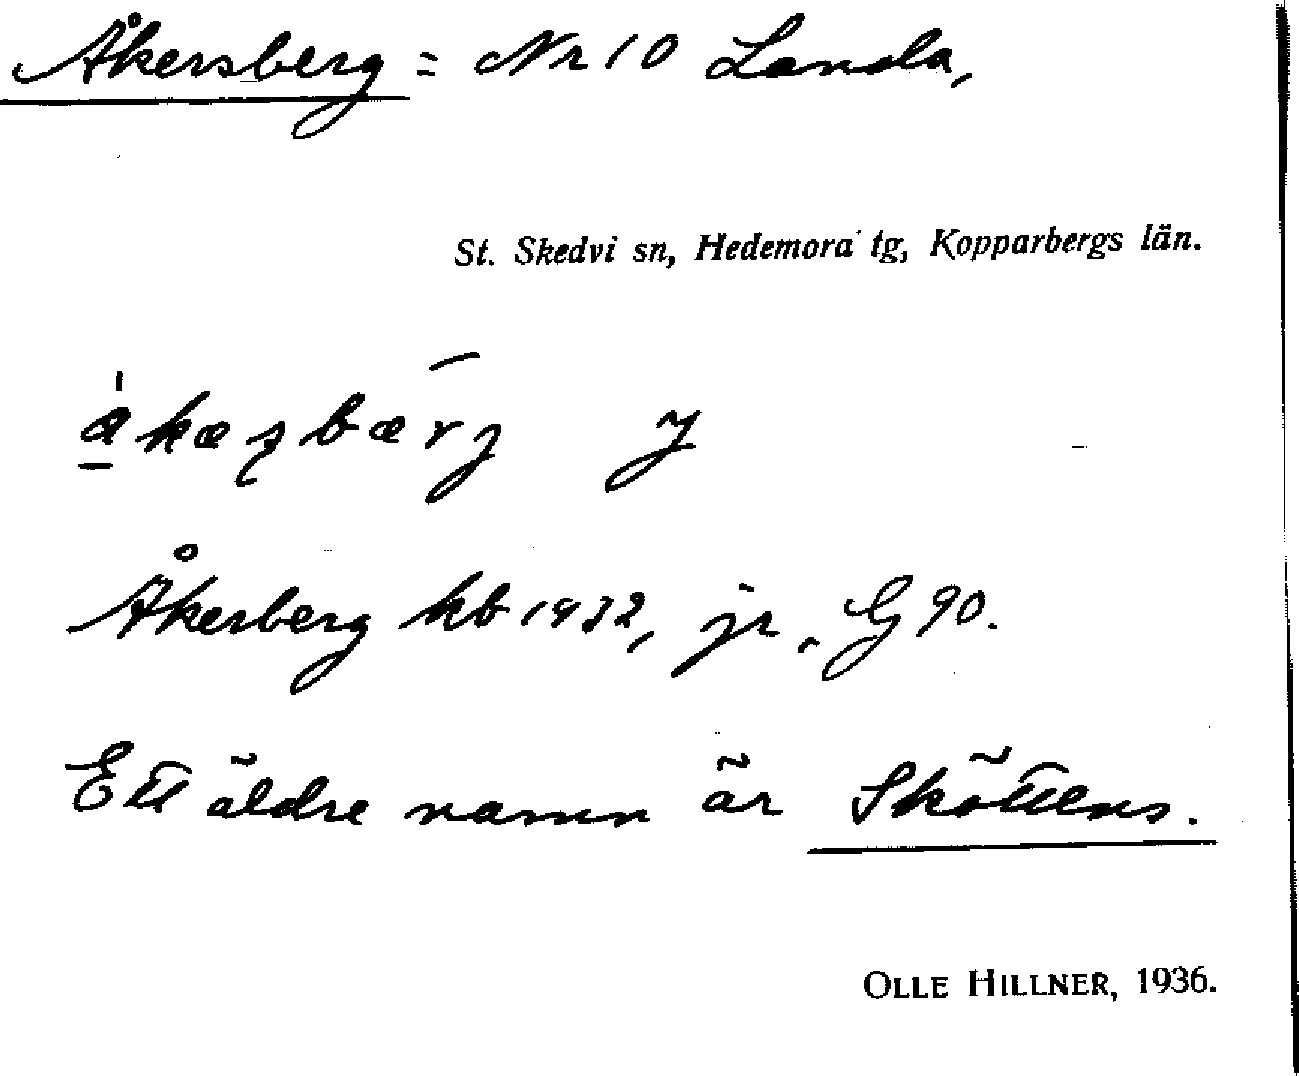 Åkersberg = Nr 10 Landa,
St. Skedvi sn, Hedemora tg, Kopparbergs län.
Åkerberg kb 1932, jr, G 90.
Ett äldre namn är Sköttens.
OLLE HILLNER, 1936.